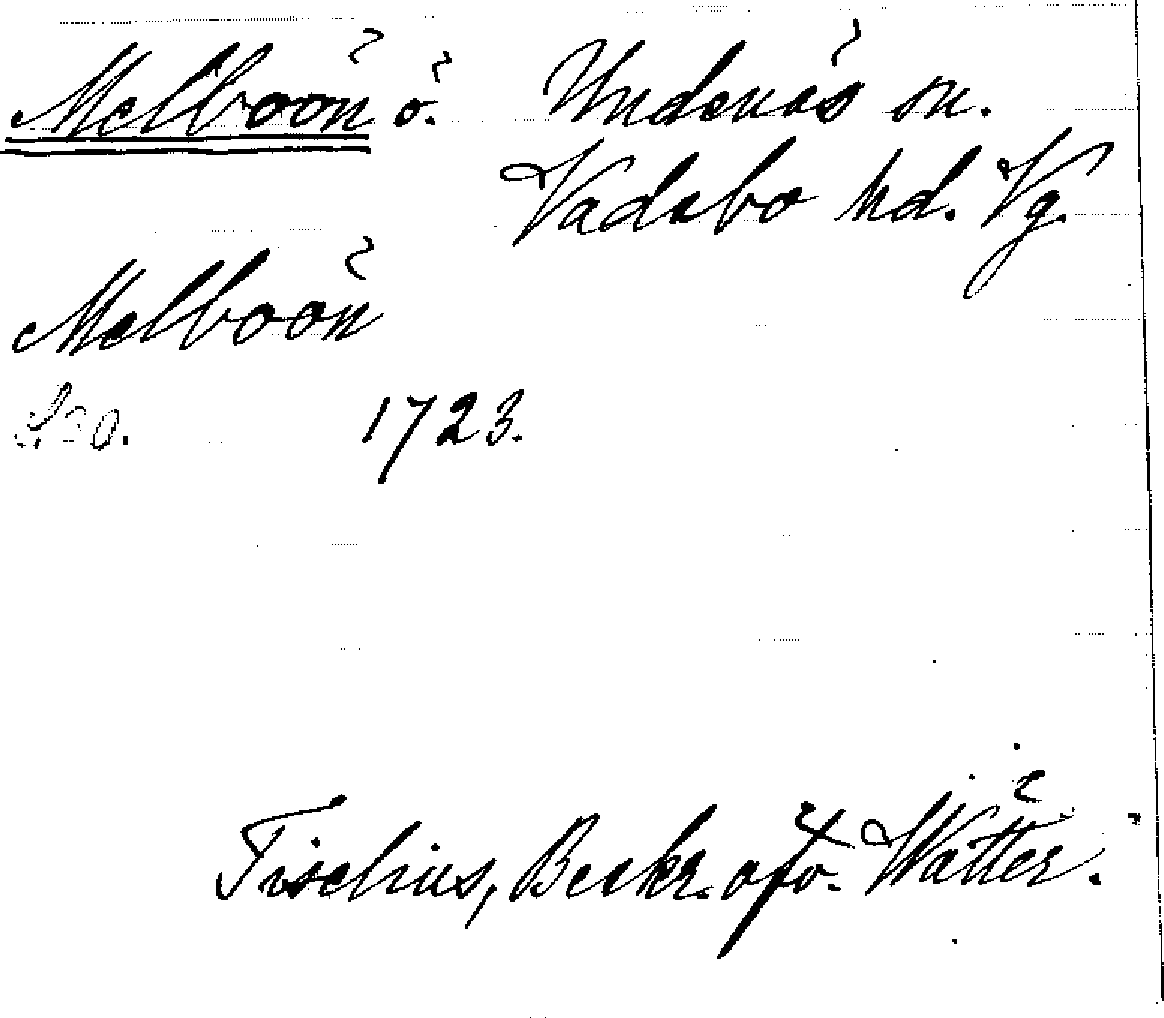 Melboön ö. Undenäs sn.
Vadsbo hd. Vg.
Melboön
S. 30. 1723.
Tiselius, Beskr. öfv. Wätter.